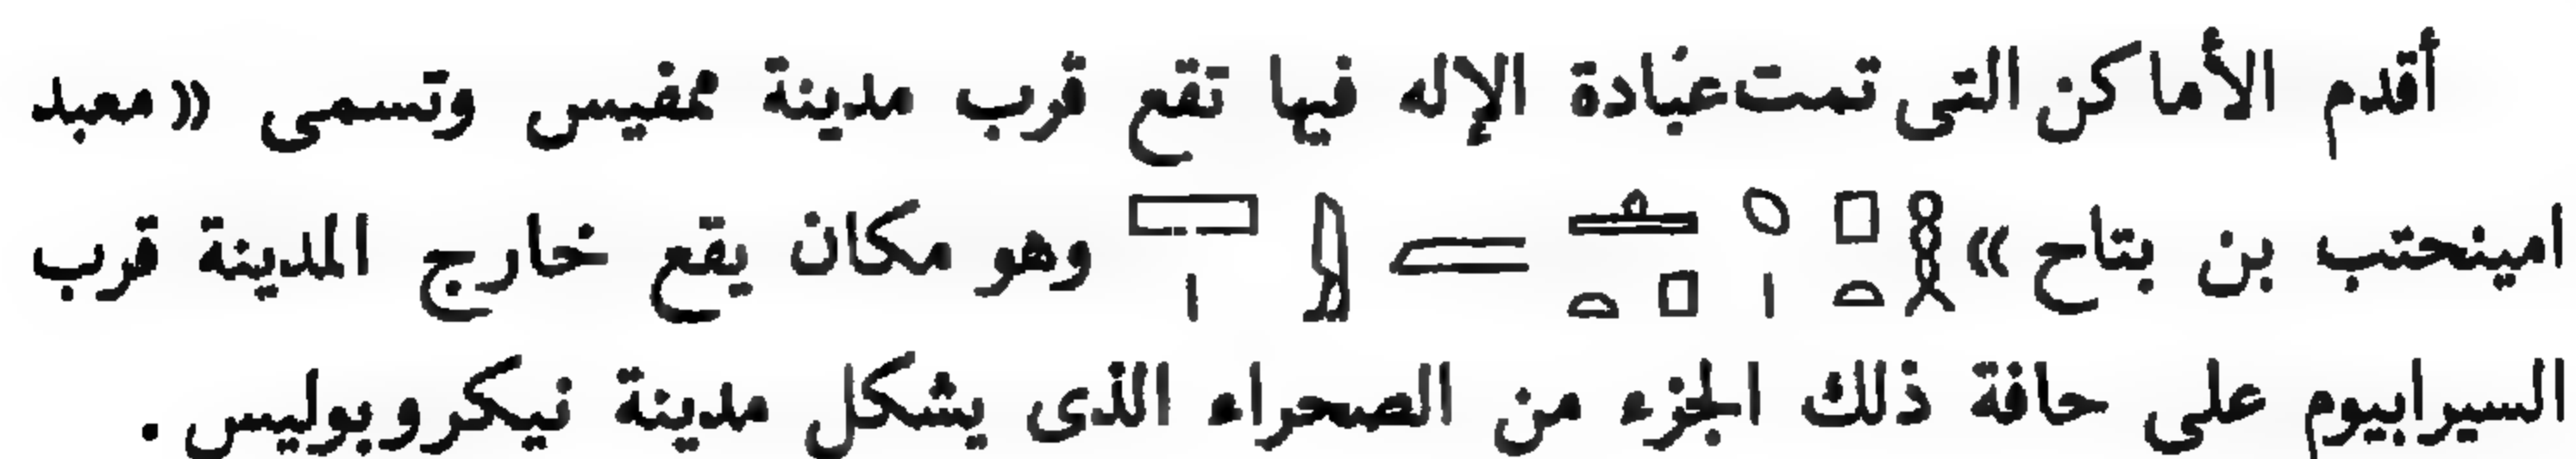 أقدم الأماكن التى تمت عبادة الإله فيها تقع قرب مدينة ممفيس وتسمى «معبد
امينحتب بن بتاح» 𓉐𓏤 𓇋 𓐛 𓊵𓏏𓊪 𓅮 وهو مكان يقع خارج المدينة قرب
السيرابيوم على حافة ذلك الجزء من الصحراء الذى يشكل مدينة نيكروبوليس .